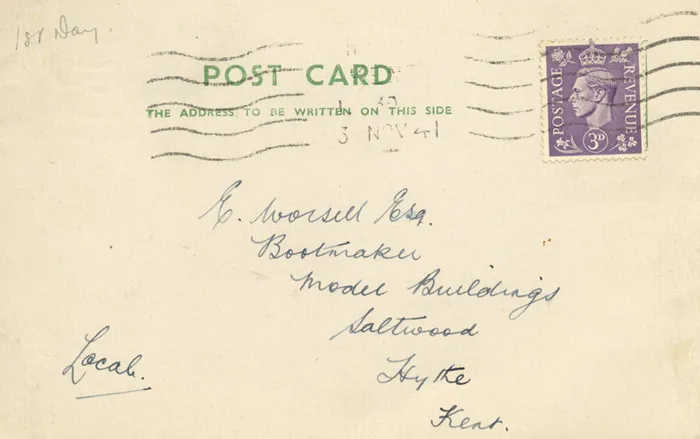 1st Day.
POST CARD
THE ADDRESS TO BE WRITTEN ON THIS SIDE
1 30
3 NOV 41
POSTAGE REVENUE
3D
E. Worsell Esq.
Bootmaker
Model Buildings
Saltwood
Hythe
Kent.
Local.